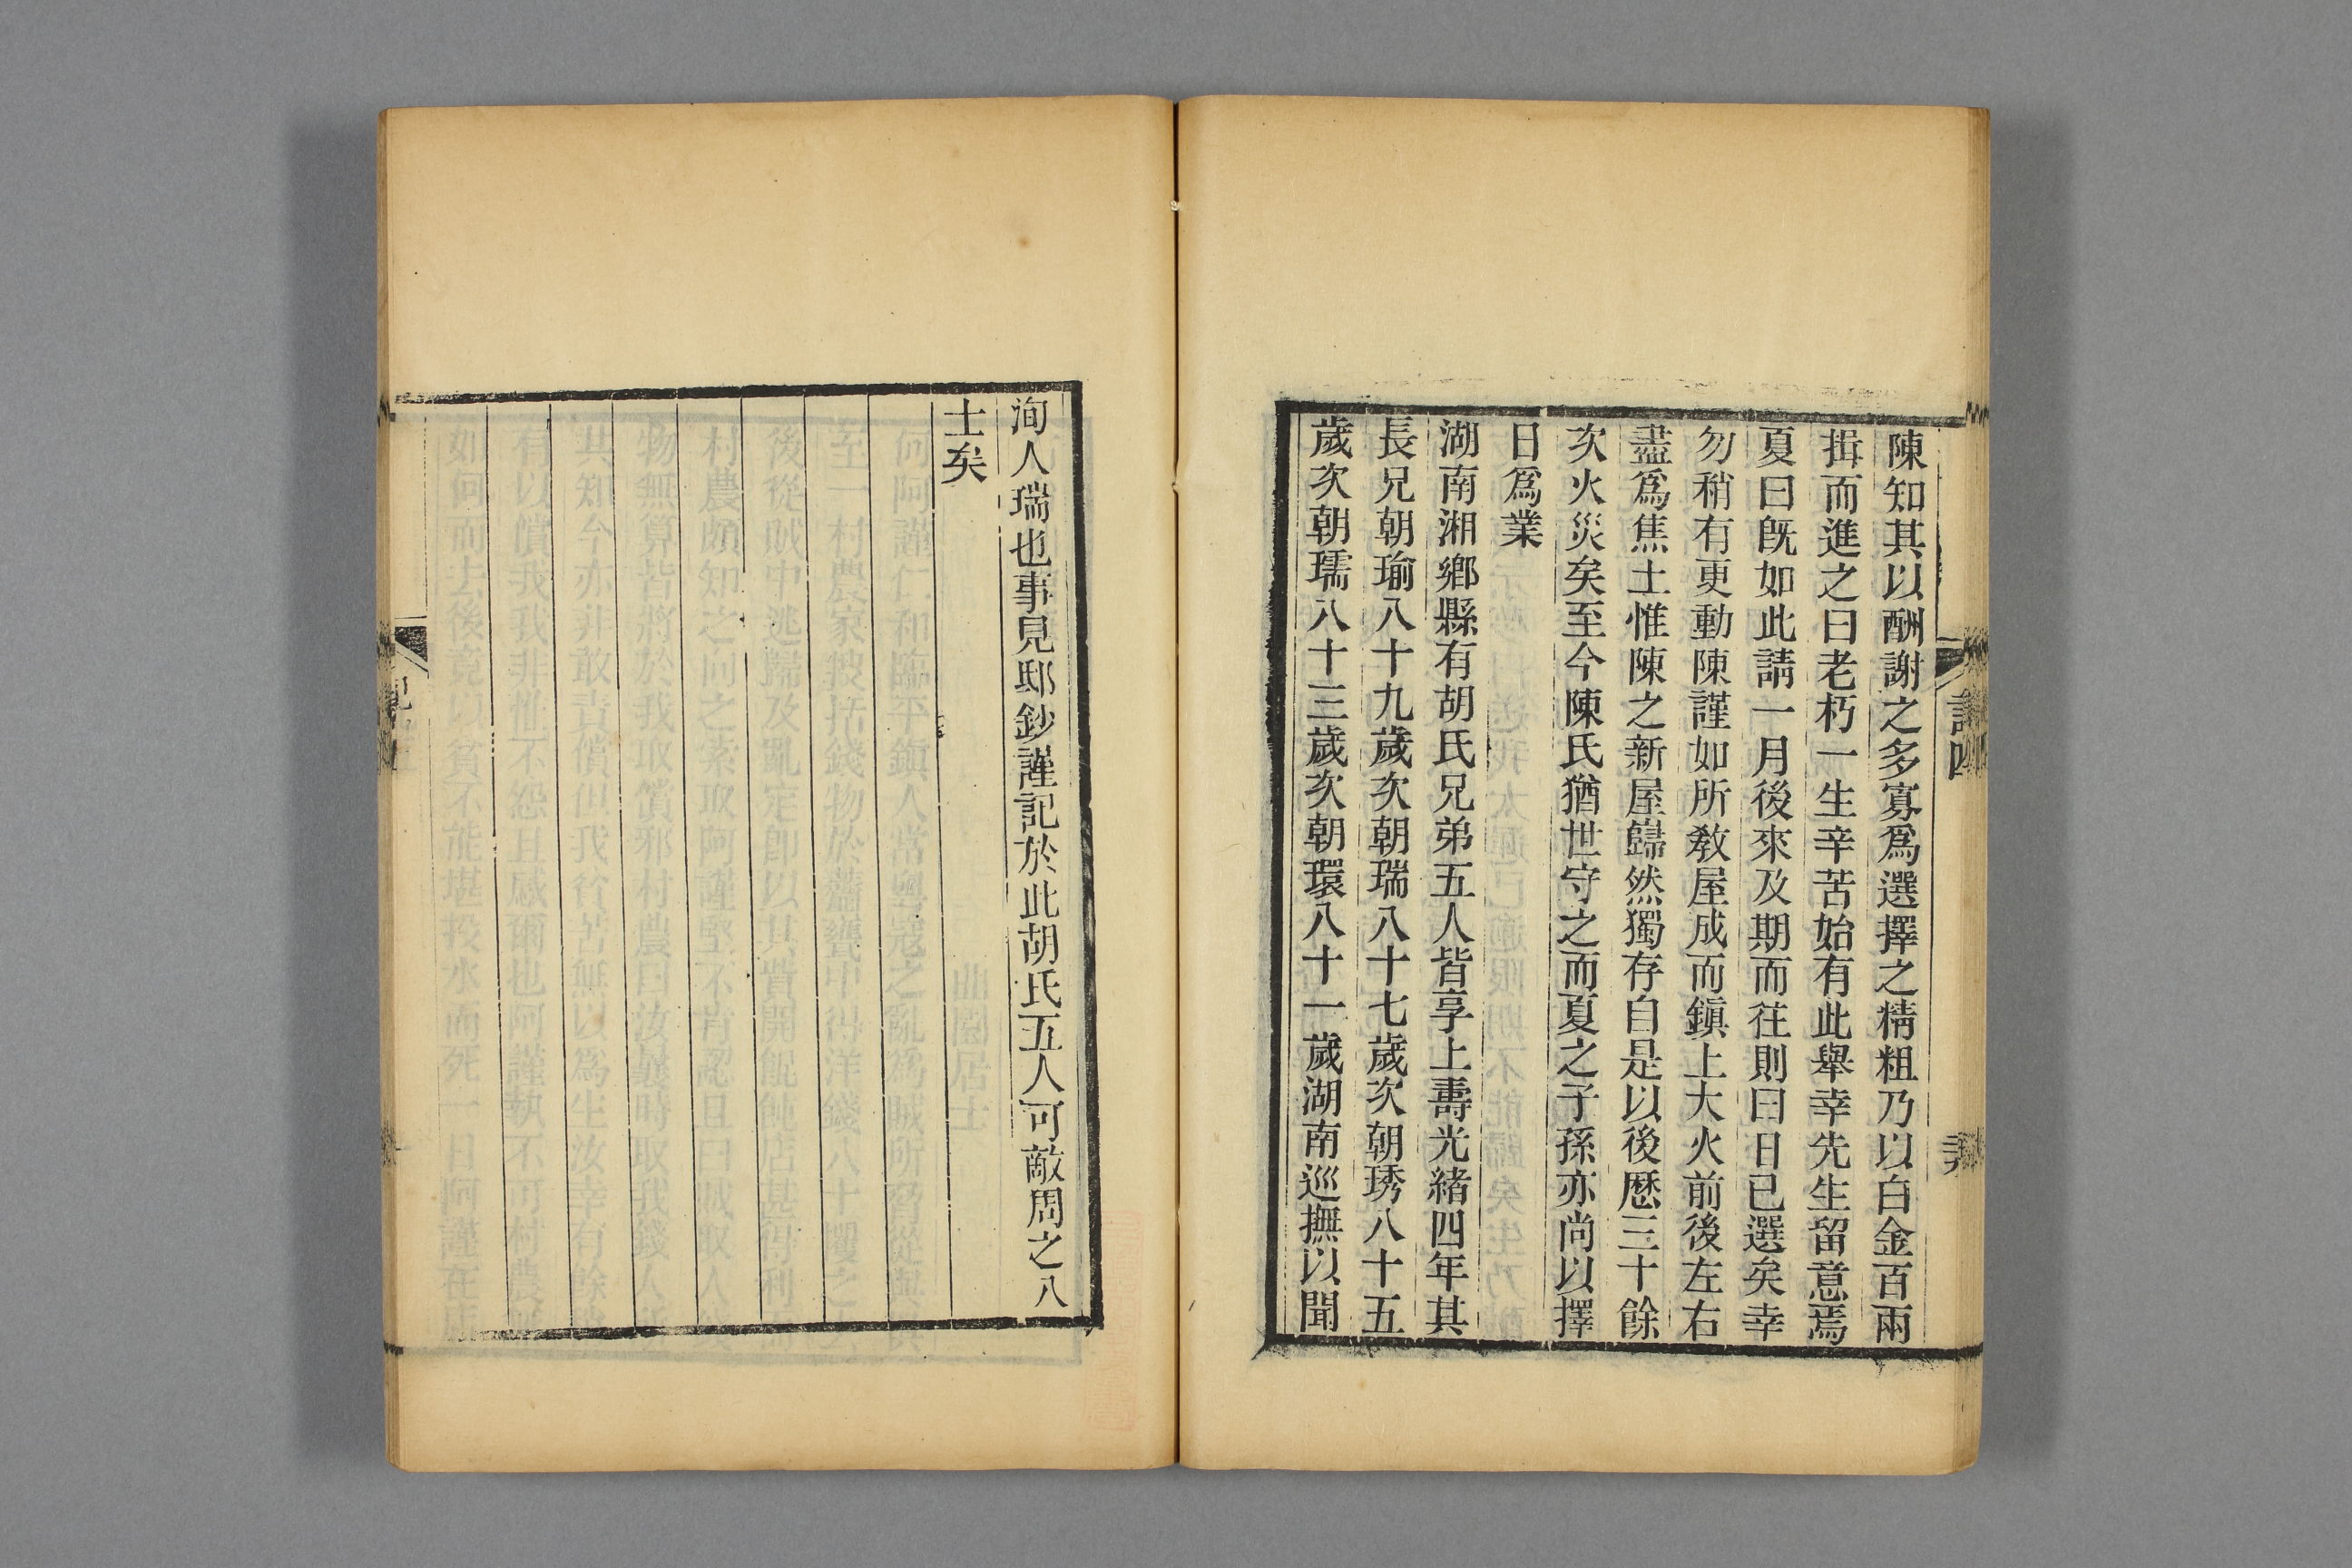 陳知其以酬謝之多寡爲選擇之精粗乃以白金百兩
揖而進之曰老朽一生辛苦始有此舉幸先生留意焉
夏曰旣如此請一月後來及期而往則曰日已選矣幸
勿稍有更動陳謹如所敎屋成而鎭上大火前後左右
盡爲焦土惟陳之新屋巋然獨存自是以後歷三十餘
次火災矣至今陳氏猶世守之而夏之子孫亦尚以擇
日爲業
湖南湘鄉縣有胡氏兄弟五人皆享上壽光緒四年其
長兄朝瑜八十九歲次朝瑞八十七歲次朝琇八十五
歲次朝瓀八十三歲次朝環八十一歲湖南巡撫以聞
洵人瑞也事見邸鈔謹記於此胡氏五人可敵周之八
士矣